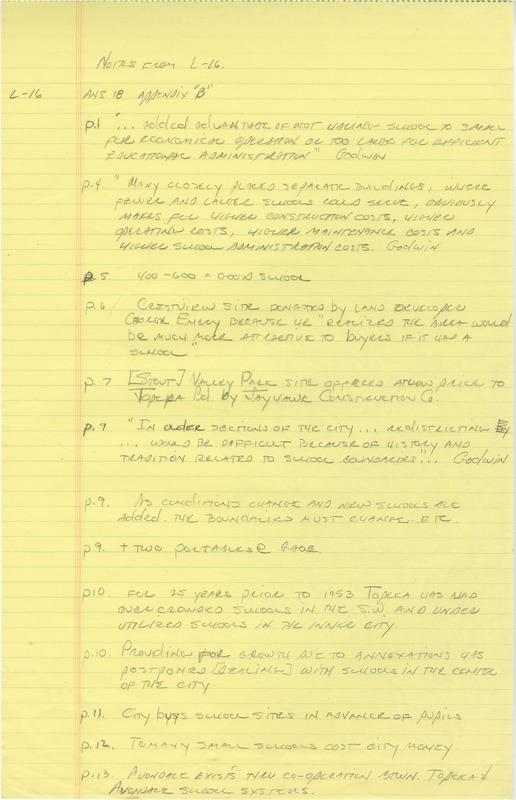 Notes from L-16.
L-16 Ans. 18 Appendix "B"
p.1 "... added advantage of not having school to small
for economical operation or too large for efficient
educational administration" Godwin
p.4 "Many closely placed separate buildings, where
fewer and larger schools could serve, obviously
makes for higher construction costs, higher
operating costs, higher maintenance costs and
higher school administration costs. Godwin
p5. 400-600 = good school
p.6 Crestview site donated by land developer
because he "realized the area would
be much more attractive to buyers if it had a
school"
p.7 [Stout] Valley Park site offered at low price to
Topeka Bd. by Jayhawk Construction Co.
p.9 "In older sections of the city... redistricting
... would be difficult because of history and
tradition related to school boundaries"... Godwin
p.9. As conditions change and new schools are
added. The boundaries must change. Etc.
p9. + two portables @ Gage
p10. For 25 years prior to 1953 Topeka has had
overcrowded schools in the S.W. and under
utilized schools in the inner city
p.10. Providing for growth due to annexations has
postponed [dealing] with schools in the center
of the city.
p.11. City buys school sites in advance of pupils
p.12. To many small schools cost city money
p.13. Avondale exists thru co-operation btwn. Topeka &
Avondale school systems.